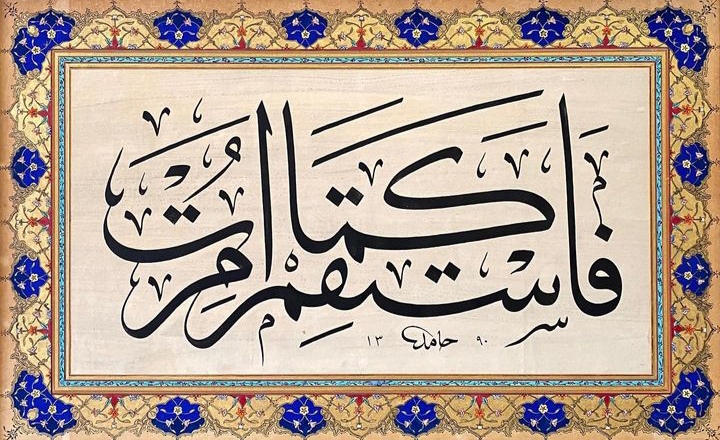 فَاسْتَقِمْ كَمَا اُمِرْتَ
حامد ١٣٩٠